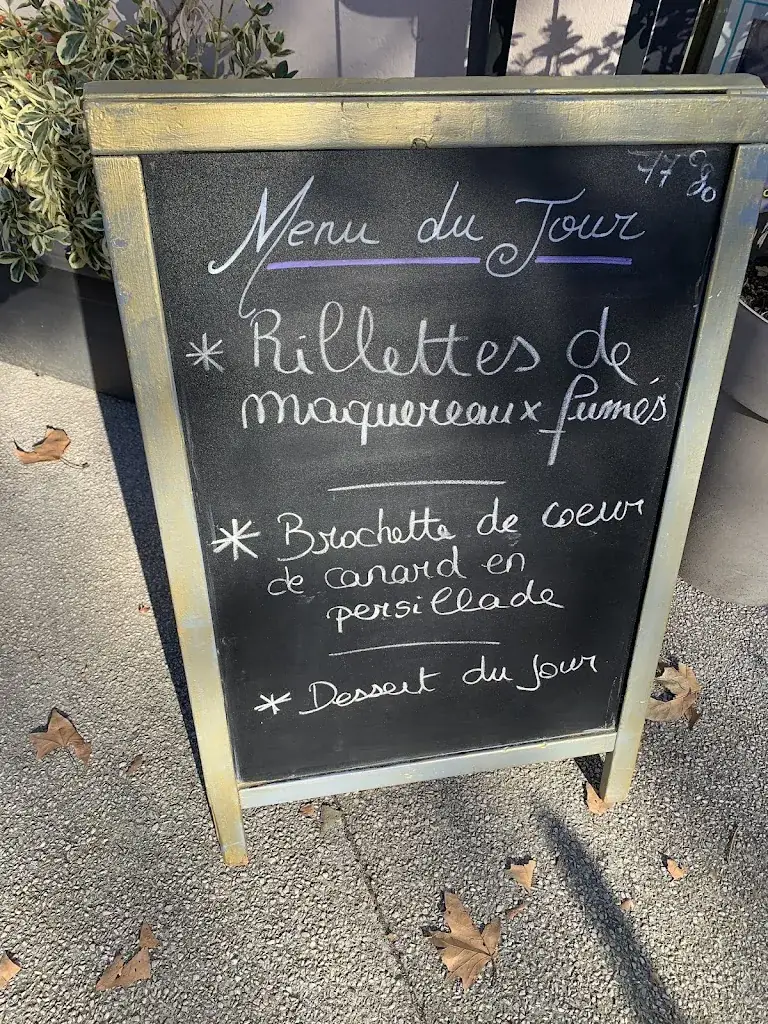 17 80
Menu du Jour
* Rillettes de
maquereaux fumés
* Brochette de coeur
de canard en
persillade
* Dessert du Jour